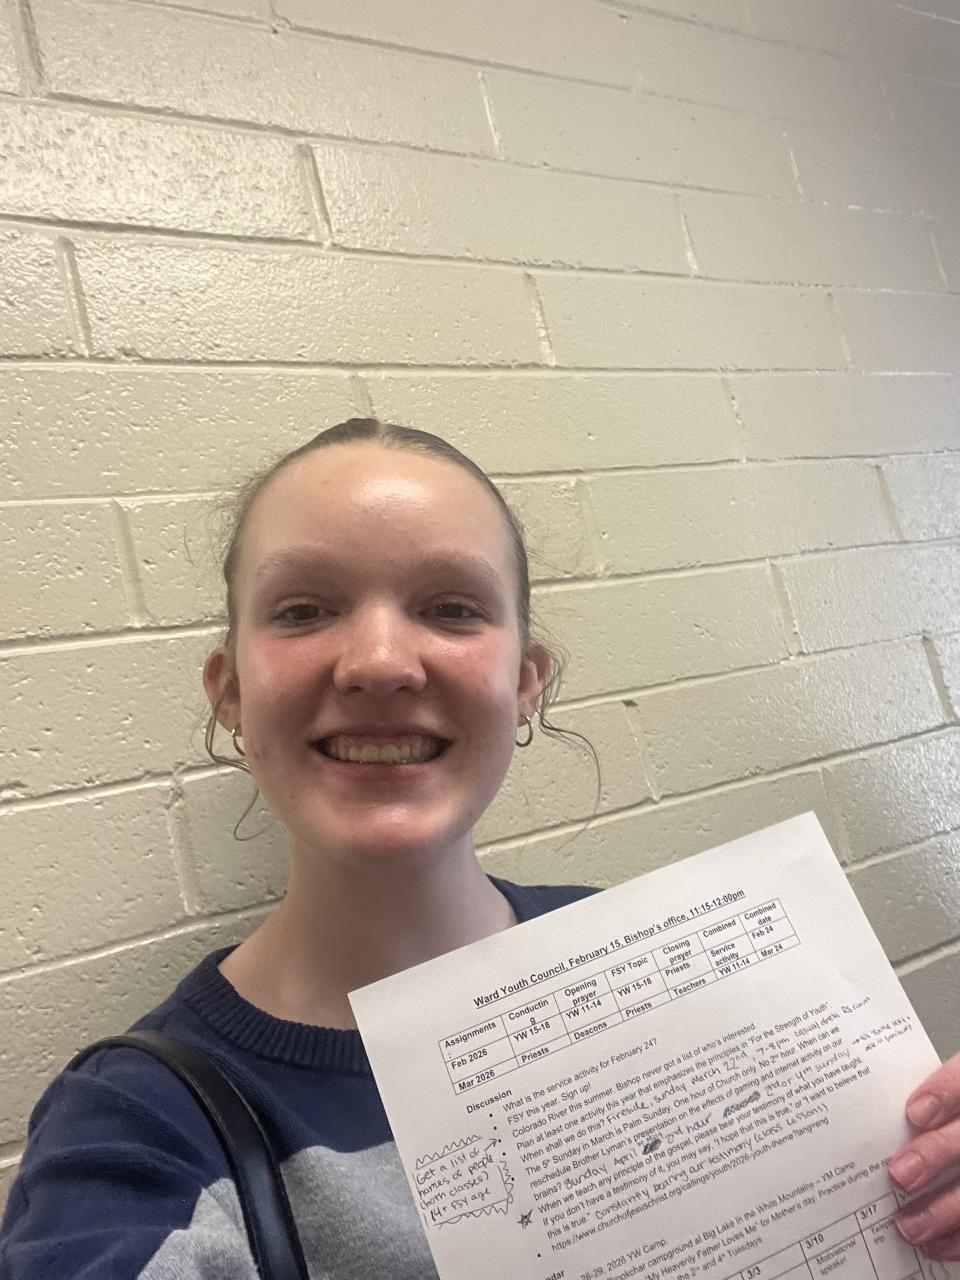 Ward Youth Council, February 15, Bishop's office, 11:15-12:00pm
Assignments : Conducting Opening prayer FSY Topic Closing prayer Combined Combined date
Feb 2026 YW 15-18 YW 11-14 YW 15-18 Priests Service activity Feb 24
Mar 2026 Priests Deacons Priests Teachers YW 11-14 Mar 24
Discussion
What is the service activity for February 24?
FSY this year. Sign up!
Colorado River this summer. Bishop never got a list of who's interested.
Plan at least one activity this year that emphasizes the principles in "For the Strength of Youth".
When shall we do this? Fireside, Sunday March 22nd, 7-8pm casual dress RS room
The 5th Sunday in March is Palm Sunday. One hour of Church only. No 2nd hour. When can we
reschedule Brother Lyman's presentation on the effects of gaming and internet activity on our
brains? Sunday April 2nd hour 2nd or 4th Sunday
When we teach any principle of the gospel, please bear your testimony of what you have taught.
If you don't have a testimony of it, you may say, "I hope that this is true," or "I want to believe that
this is true." Constantly bearing our testimony (class lessons)
https://www.churchofjesuschrist.org/callings/youth/2026-youth-theme?lang=eng
Get a list of
names of people
(both classes)
14+ FSY age
26-29, 2026 YW Camp.
campground at Big Lake in the White Mountains – YM Camp
"My Heavenly Father Loves Me" for Mother's day. Practice during the
the 2nd and 4th Tuesdays
3/3 3/10 3/17
Motivational speaker
Temple trip